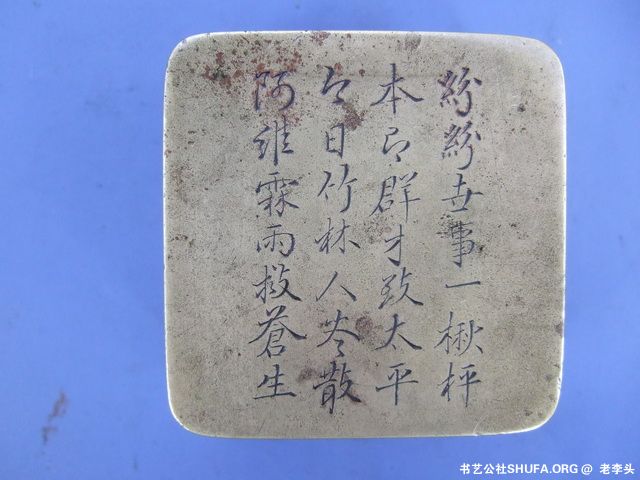 紛紛世事一楸枰
本群才致太平
今日竹林人尽散
阿誰霖雨救蒼生
书艺公社SHUFA.ORG @ 老李头